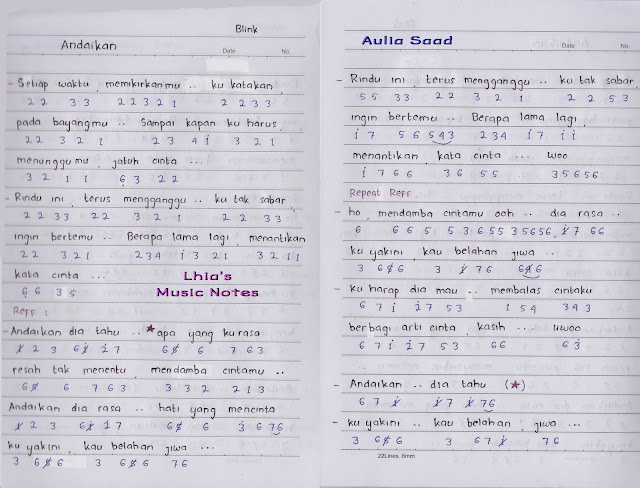 Blink
Andaikan
Date No.
- Setiap waktu, memikirkanmu .. ku katakan,
2 2 3 3 2 2 3 2 1 2 2 3 3
pada bayangmu .. Sampai kapan ku harus,
2 2 3 2 1 2 3 4 i 3 2 1
menunggumu, jatuh cinta ...
3 2 1 1 6 3 2 2
- Rindu ini, terus mengganggu .. ku tak sabar,
2 2 3 3 2 2 3 2 1 2 2 3 3
ingin bertemu .. Berapa lama lagi, menantikan
2 2 3 2 1 2 3 4 i 3 2 1 3 2 1 1
kata cinta ...
6 6 3 5
Lhia's
Music Notes
Reff :
- Andaikan dia tahu .. ★ apa yang kurasa
1 2 3 6 1 i 7 6 6 6 7 6 3
resah tak menentu, mendamba cintamu ..
6 6 6 7 6 3 3 3 2 2 1 3
Andaikan dia rasa .. hati yang mencinta
1 2 3 6 1 i 7 6 6 6 3 6 7 6
ku yakini, kau belahan jiwa ...
3 6 6 6 3 6 6 6 7 6
Aulia Saad
Date No.
- Rindu ini, terus mengganggu .. ku tak sabar,
5 5 3 3 2 2 3 2 1 2 2 5 3
ingin bertemu .. Berapa lama lagi,
i 7 5 6 5 4 3 2 3 4 i 7 i i
menantikan kata cinta ... woo
i 7 6 6 3 6 5 5 3 5 6 5 6
Repeat Reff.
- ho, mendamba cintamu ooh .. dia rasa ..
6 6 6 5 5 3 6 5 5 3 5 6 5 6, i 7 6 6
ku yakini, kau belahan jiwa ..
3 6 6 6 3 i 7 6 6 6 6
- ku harap dia mau .. membalas cintaku
6 7 i i 7 5 3 1 5 4 3 4 3
berbagi arti cinta, kasih .. uwoo
6 7 i i 7 5 3 6 6 6 3
- Andaikan .. dia tahu (★)
6 7 i i 7 i 7 6
- ku yakini .. kau belahan jiwa ...
3 6 6 6 3 6 7 i 7 6
22Lines, 8mm